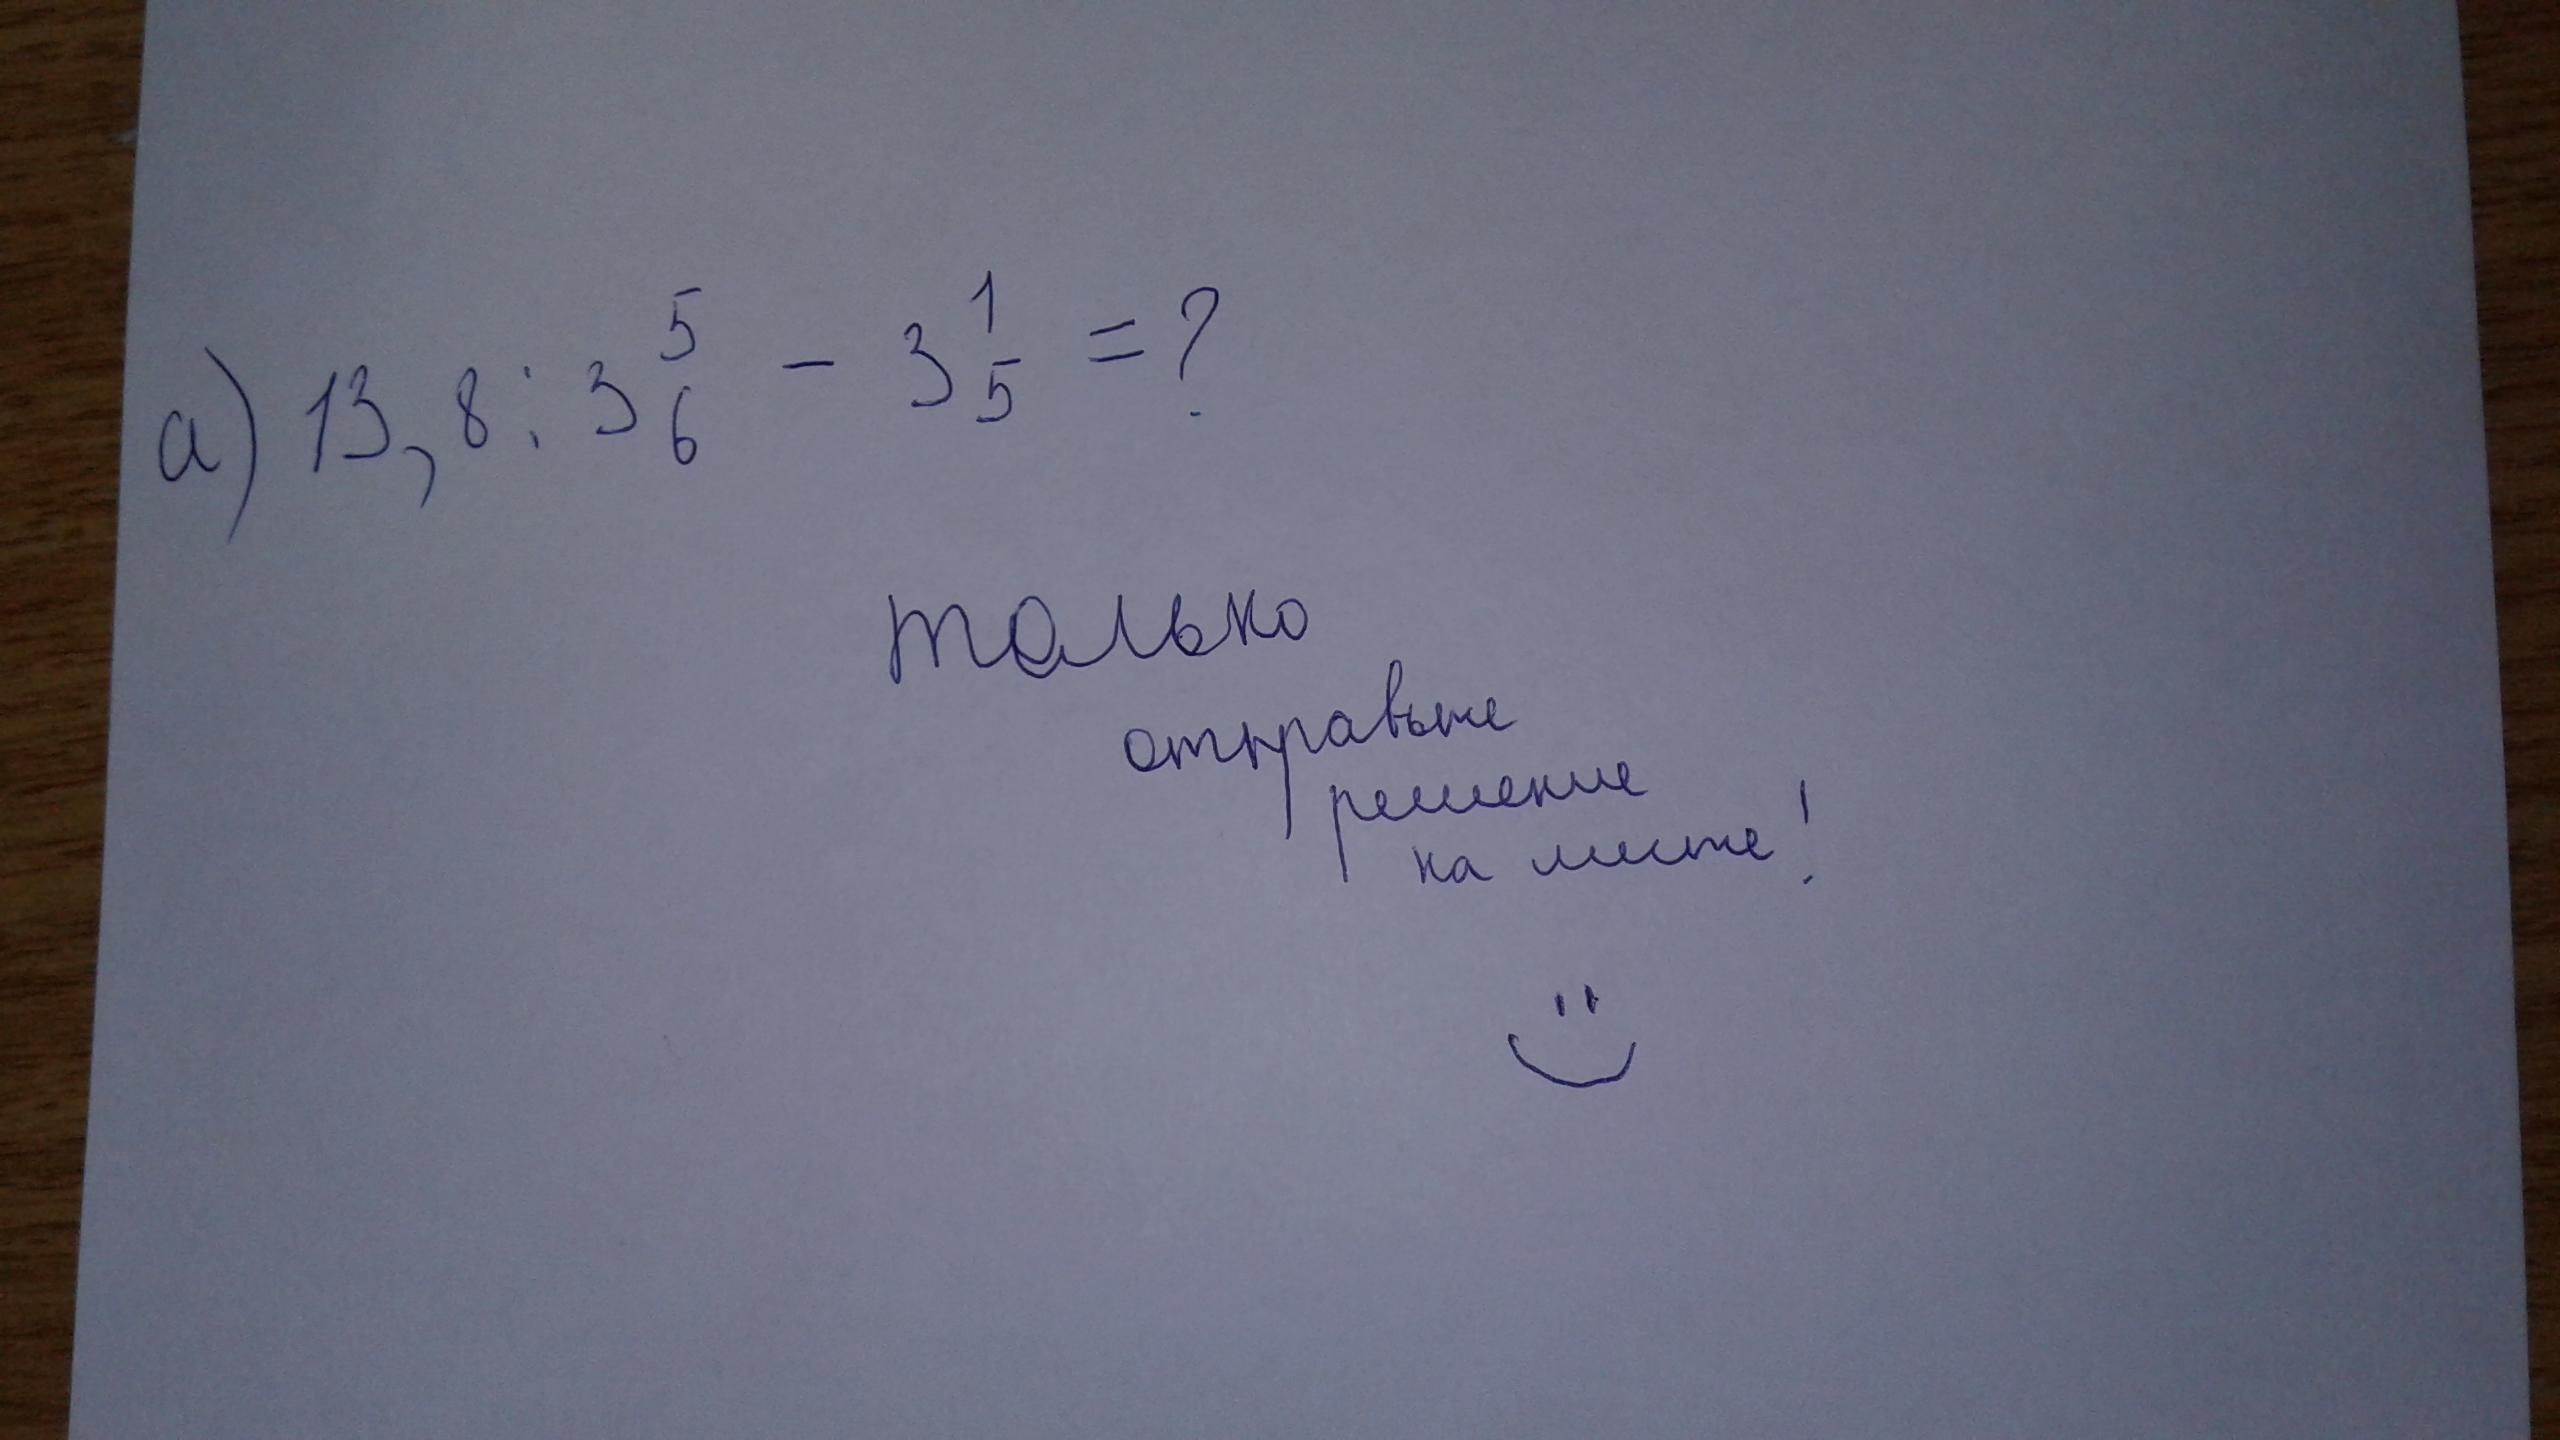 а) 13,8 : 3 5/6 - 3 1/5 = ?
только
отправьте
решение
на листе!